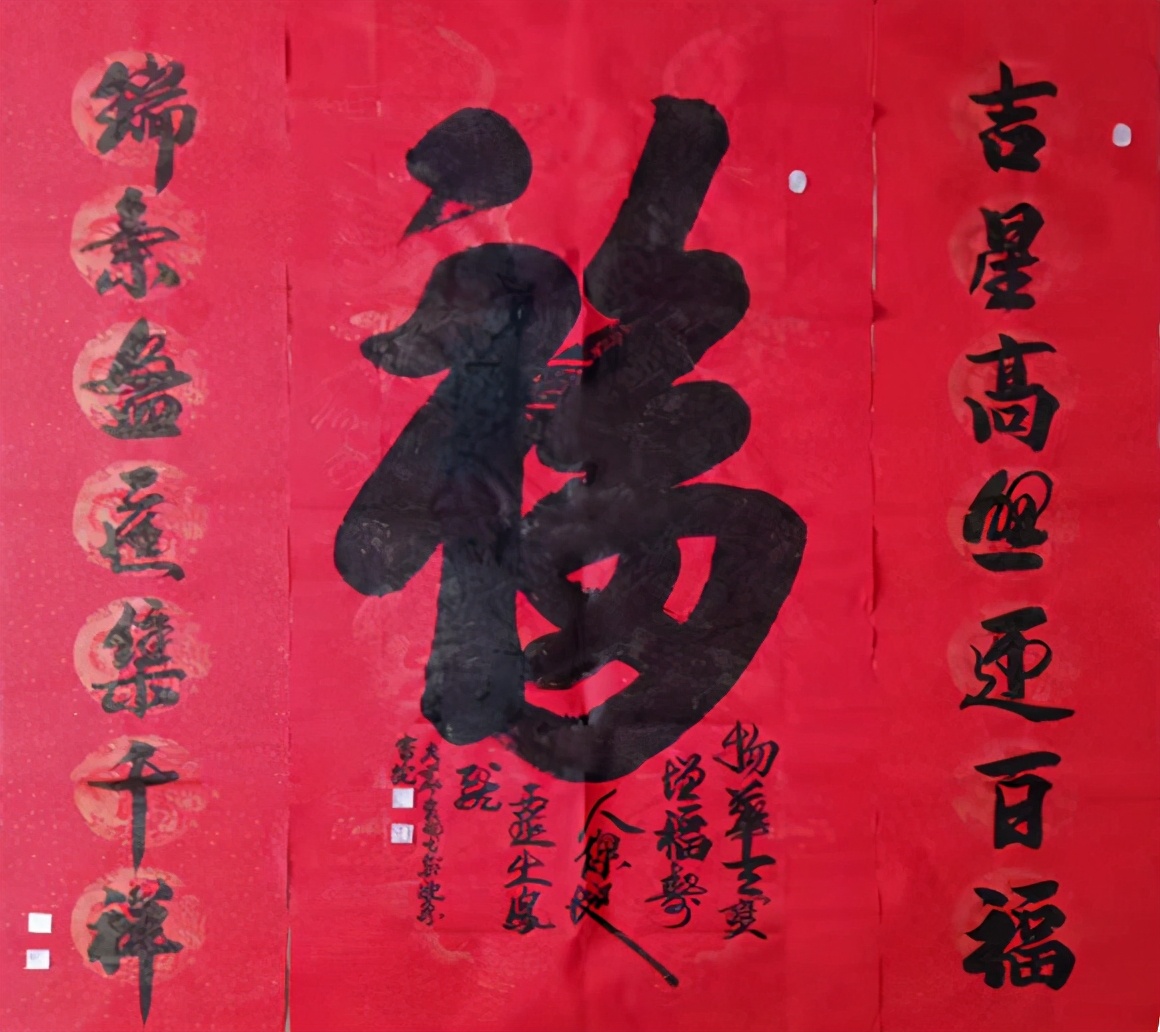 吉星高照迎百福
福
物華天寶
增福壽
人傑地
靈生鳳
龍
瑞氣盈庭集千祥